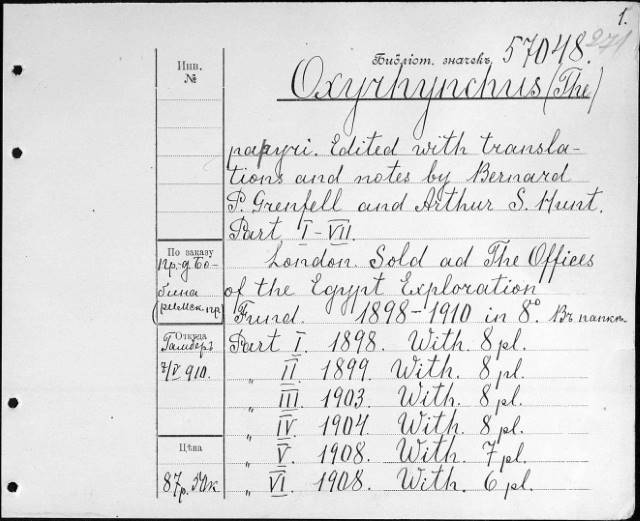 1.
271
Библіот. значекъ 57048.
Oxyrhynchus (The)
papyri. Edited with transla-
tions and notes by Bernard
P. Grenfell and Arthur S. Hunt.
Part I-VII.
London. Sold ad The Offices
of the Egypt Exploration
Fund. 1898-1910 in 8°. Въ папкт.
Part I. 1898. With 8 pl.
„ II. 1899. With. 8 pl.
„ III. 1903. With. 8 pl.
„ IV. 1904. With. 8 pl.
„ V. 1908. With. 7 pl.
„ VI. 1908. With. 6 pl.
Инв.
№
По заказу
пр-д Бо-
бина
(римск. пр)
Откуда
7/V 910.
Цѣна
87р. 50к